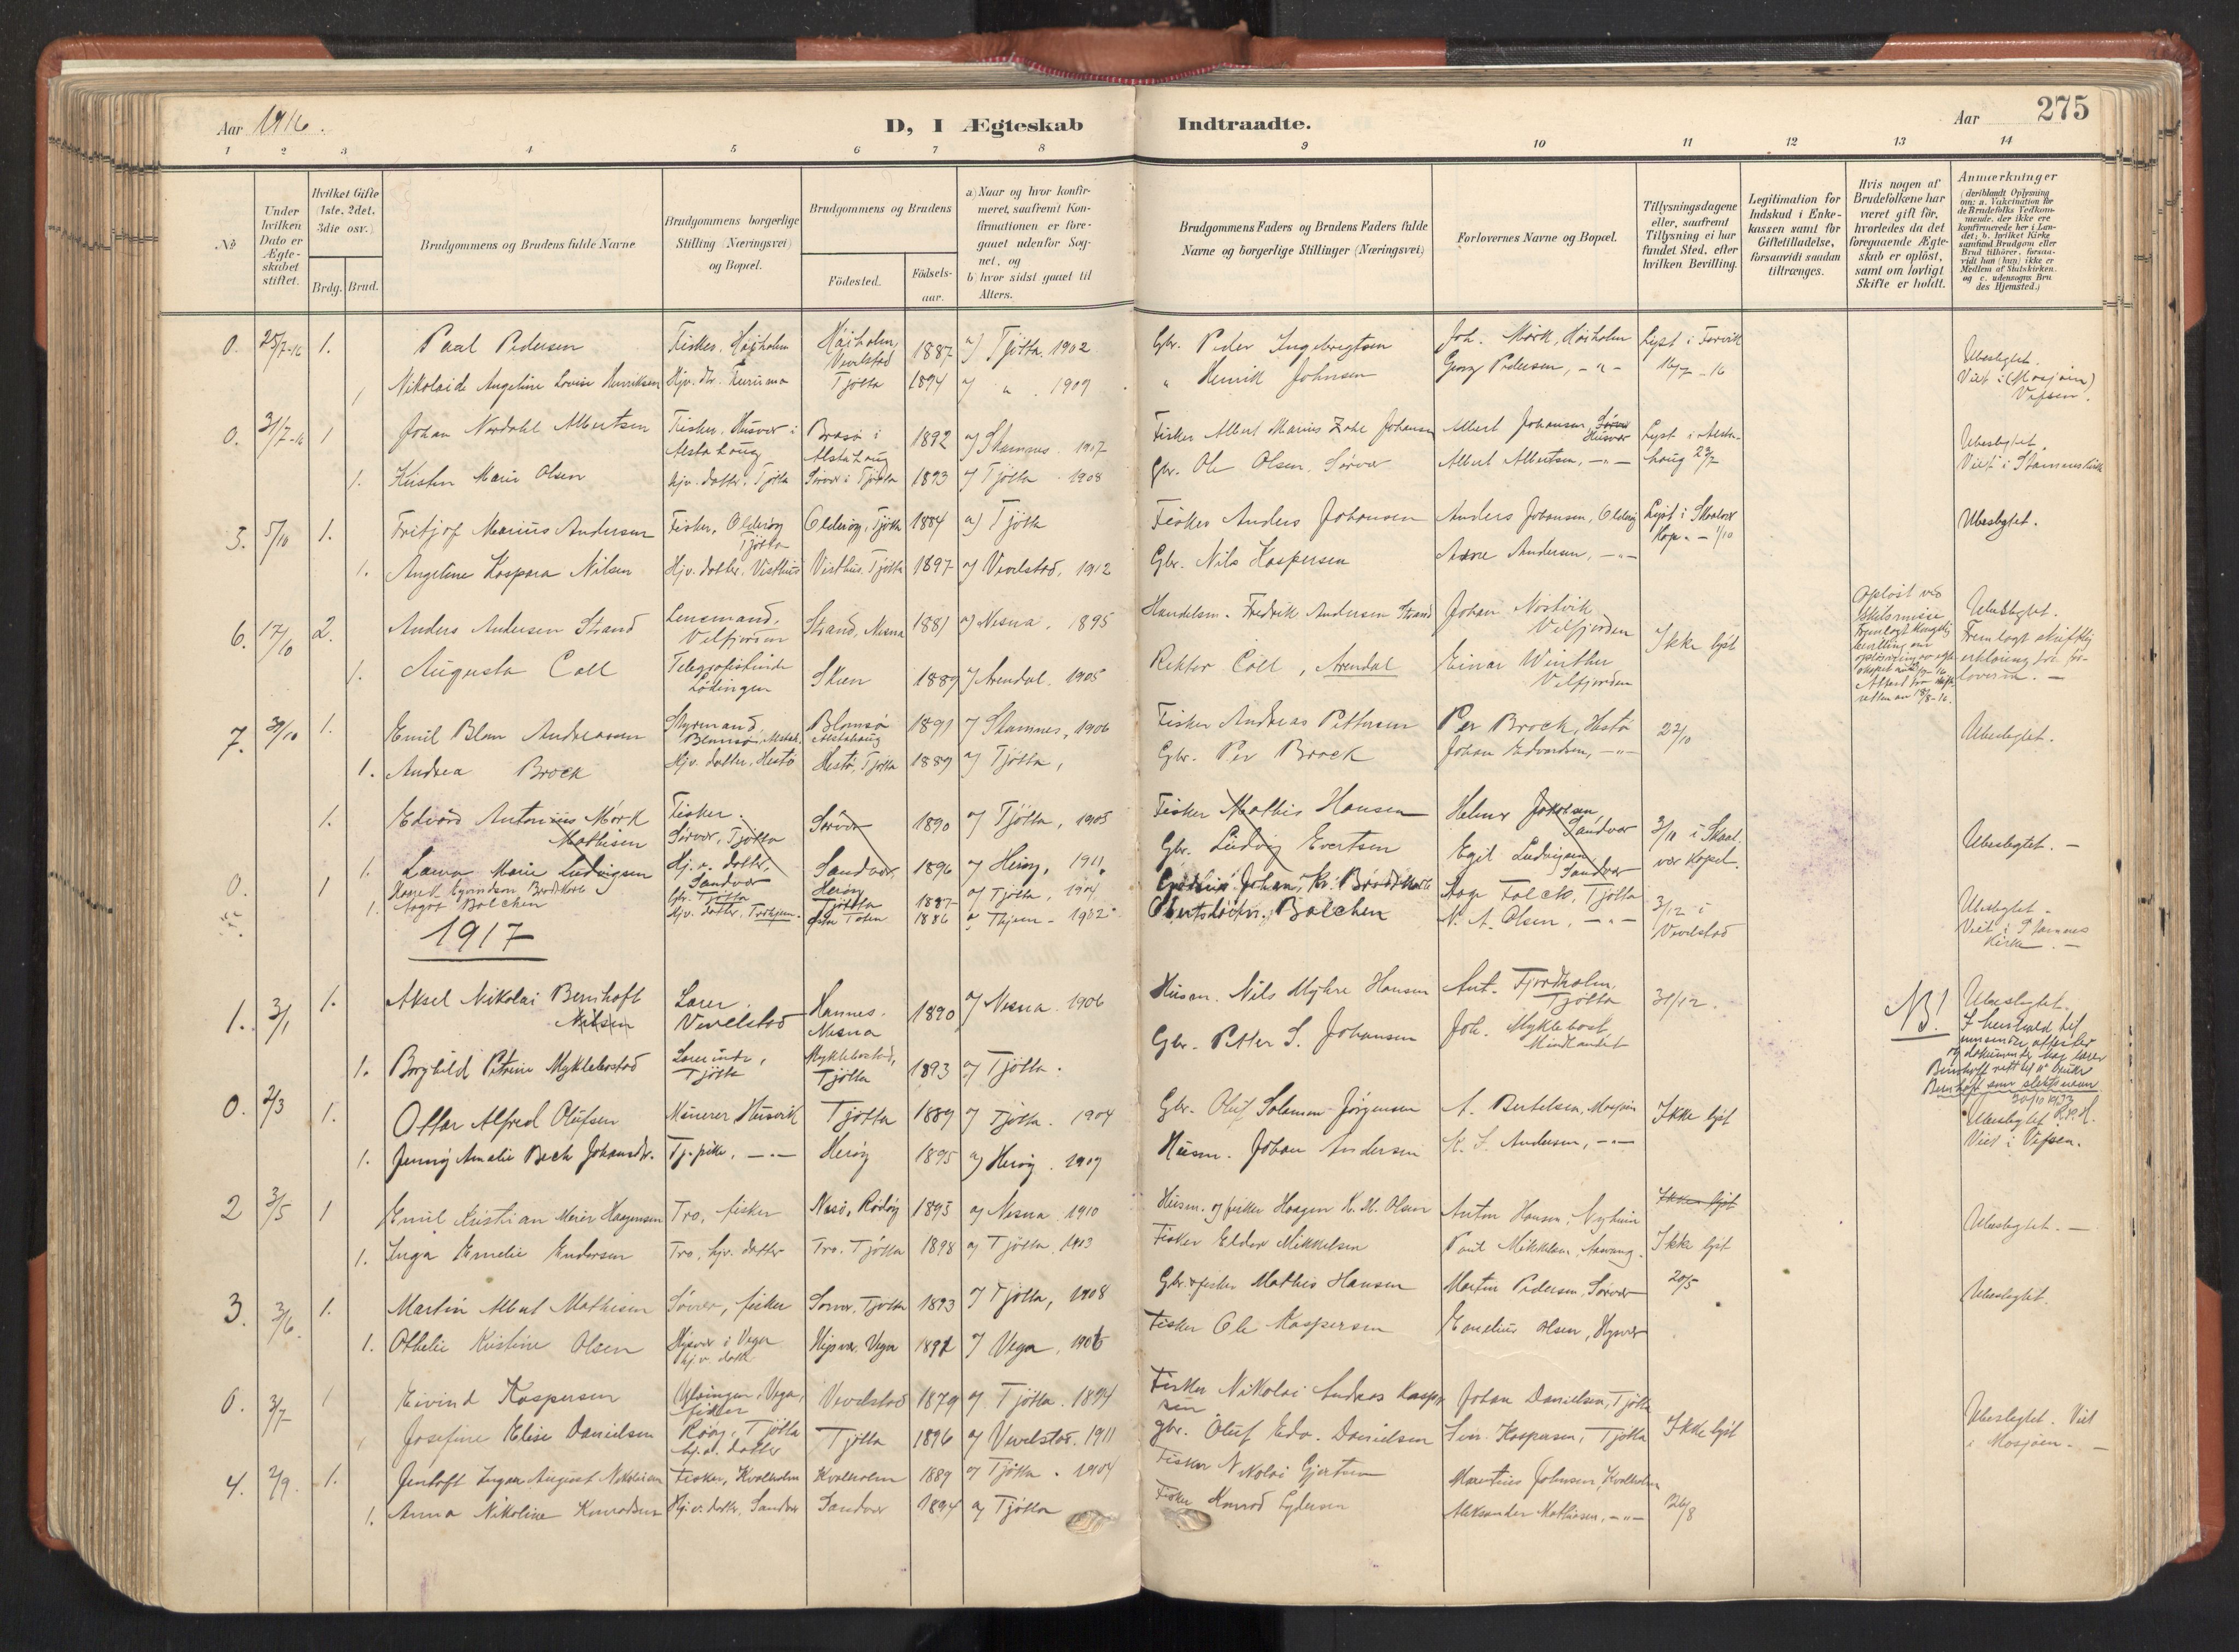 Aar 1916.
D, I Ægteskab
Indtraadte.
Aar
275
1 2 3 4 5 6 7 8 9 10 11 12 13 14
No
Under hvilken Dato er Ægteskabet stiftet.
Hvilket Gifte (1ste, 2det, 3die osv.)
Brdg.
Brud.
Brudgommens og Brudens fulde Navne
Brudgommens borgerlige Stilling (Næringsvei) og Bopæl.
Brudgommens og Brudens
Fødested.
Fødselsaar.
a) Naar og hvor konfirmeret, saafremt Konfirmationen er foregaaet udenfor Sognet, og
b) hvor sidst gaaet til Alters.
Brudgommens Faders og Brudens Faders fulde Navne og borgerlige Stillinger (Næringsvei)
Forlovernes Navne og Bopæl.
Tillysningsdagene eller, saafremt Tillysning ei har fundet Sted, efter hvilken Bevilling.
Legitimation for Indskud i Enkekassen samt for Giftetilladelse, forsaavidt saadan tiltrænges.
Hvis nogen af Brudefolkene har været gift før, hvorledes da det foregaaende Ægteskab er opløst, samt om lovligt Skifte er holdt.
Anmærkninger
(deriblandt Oplysning om: a. Vakcination for de Brudefolks Vedkommende, der ikke ere konfirmerede her i Landet; b. hvilket Kirkesamfund Brudgom eller Brud tilhører, forsaavidt han (hun) ikke er Medlem af Statskirken, og c. udensogns Brudes Hjemsted.)
0. 25/7-16 1. Paal Pedersen Fisker. Høiholm Høiholm, Vevelstad 1887 a) Tjøtta. 1902 Gbr. Peder Ingebrigtsen Joh. Mørk, Høiholm Lyst i Forvik Ubeslegtet.
1 Nikolaide Angeline Lovise Henriksen Hjv. dtr. Tjøtta 1894 a) " . 1909 " Henrik Johnsen Georg Pedersen, -"- 16/7-16 Viet i (Mosjøen) Vefsen.
0. 31/7-16 1 Johan Nordahl Albertsen Fisker. Husvær i Alstahaug Brasø i Alstahaug 1892 a) Stamnes. 1907 Fisker Albert Marius Zahl Johansen Albert Johansen, Husvær Lyst i Alstahaug 23/7 Ubeslegtet.
1. Kirsten Marie Olsen Hjv. datter. Tjøtta Sørvær i Tjøtta 1893 a) Tjøtta 1908 Gbr. Ole Olsen. Sørvær Albert Albertsen, -"- Viet i Stamnes kirke
5. 5/10 1. Fritjof Marius Andersen Fisker, Olderøy Tjøtta Olderøy, Tjøtta 1884 a) Tjøtta Fisker Anders Johansen Anders Johansen, Olderøy Lyst i Skaalvær Kap. - 1/10 Ubeslegtet.
1. Angeline Kaspara Nilsen Hjv. datter. Visthus Visthus. Tjøtta 1897 a) Vevelstad, 1912 Gbr. Nils Kaspersen Arne Andersen, -"-
6. 17/10 2. Anders Andersen Strand Lensmand, Velfjorden Strand, Nesna 1881 a) Nesna. 1895 Handelsm. Fredrik Andersen Strand Johan Nostvik Velfjorden Ikke lyst Opløst ved Skilsmisse Fremlagt Kongelig bevilling om opløsning av egteskapet Ubeslegtet. Fremlagt skriftlig erklæring fra forlovern.-
1. Augusta Coll Telegrafistinde Lødingen Skien 1889 a) Arendal. 1905 Rektor Coll, Arendal Einar Winther Velfjorden
7. 30/10 1. Emil Blom Andreassen Styrmand Blomsø, Alstah. Blomsø Alstahaug 1891 a) Stamnes, 1906 Fisker Andreas Pettersen Per Brock, Hestø 22/10 Ubeslegtet.
1. Andrea Brock Hjv. datter. Hestø Hestø, Tjøtta 1889 a) Tjøtta, Gbr. Per Brock Johan Edvardsen, -"-
1. Edvard Antonius Mørk Mathisen Fisker. Sørvær, Tjøtta Sørvær 1890 a) Tjøtta, 1905 Fisker Mathis Hansen Helmer Jakobsen, Sandvær 3/11 i Skaalvær kapel. Ubeslegtet.-
1. Laura Marie Ludvigsen Hj. v. datter, Sandvær Sandvær 1896 a) Herøy, 1911. Gbr. Ludvig Evertsen Egil Ludvigsen Sandvær
0. 1 Gbr. Tjøtta Herøy Tjøtta 1887 a) Tjøtta, 1904 Johan, Kr. Brodtkorb Aage Falck, Tjøtta 3/12 i Vevelstad Ubeslegtet.
1. Balchen Hjv. datter, Østre Toten 1886 a) Thjem - 1902 Balchen N. A. Olsen. -"- Viet i Stamnes Kirke.-
1917
1. 3/1 1. Aksel Nikolai Bernhoft Nilsen Lærer. Vevelstad Hannes. Nesna 1890 a) Nesna. 1906 Husm. Nils Myhre Hansen Ant. Fjordholm, Tjøtta 31/12. NB! Ubeslegtet. I henhold til innsendte attester og dokumenter har lærer Bernhoft rett til å bruke Bernhoft som slektsnavn
1. Borghild Petrine Myklebostad Lærerinde, Tjøtta Myklebostad, Tjøtta 1893 a) Tjøtta. Gbr. Petter S. Johansen Joh. Myklebost, Mindlandet
0. 2/3 1. Ottar Alfred Olufsen Murer, Husvik Tjøtta 1889 a) Tjøtta. 1904 Gbr. Oluf Salomon Jørgensen A. Bertelsen, Mosjøen Ikke lyst Ubeslegtet Viet i Vefsen.
1. Jenny Amalie Bech Johansdr. Tj. pike, -"- Herøy 1895 a) Herøy. 1909 Husm. Johan Andersen K. S. Andersen, -"-
2 3/5 1 Emil Kristian Meier Haagensen Tro, fisker Nesø, Rødøy 1895 a) Nesna 1910 Husm. og fisker Haagen K. M. Olsen Anton Hansen, Nyheim Ikke lyst Ubeslegtet.-
1. Inga Emelie Eldorsen Tro, hjv. datter Tro. Tjøtta 1898 a) Tjøtta. 1913 Fisker Eldor Mikkelsen Paul Mikkelsen, Ikke lyst
3. 3/6. 1. Martin Albert Mathisen Sørvær, fisker Sørvær, Tjøtta 1893 a) Tjøtta, 1908 Gbr. & fisker Mathis Hansen Martin Pedersen, Sørvær 20/5 Ubeslegtet.
1. Othelie Kristine Olsen Hysvær i Vega hj.v. datt. Hysvær. Vega 1892 a) Vega, 1906 Fisker Ole Kaspersen Emelius Olsen, Hysvær
0. 3/7 1 Eivind Kaspersen Ylvingen, Vega, fisker Vevelstad 1879 a) Tjøtta. 1894 Fisker Nikolai Andreas Kaspersen Johan Danielsen, Tjøtta Ikke lyst Ubeslegtet. Viet i Mosjøen.-
1 Josefine Elise Danielsen Røøy, Tjøtta hj.v. datter Tjøtta 1896 a) Vevelstad. 1911 gbr. Oluf Edv. Danielsen Sev. Kaspersen, Tjøtta
4. 2/9. 1. Jentoft Ingvar August Nikolaisen Fisker, Kvalholm Kvalholmen 1889 a) Tjøtta. 1904 Fisker Nikolai Gjertsen Marentius Johnsen, Kvalholmen 26/8
1. Anna Nikoline Konradsen Hj.v. datter, Sandvær Sandvær 1894 a) Tjøtta Fisker Konrad Aleksander Mathisen, -"-